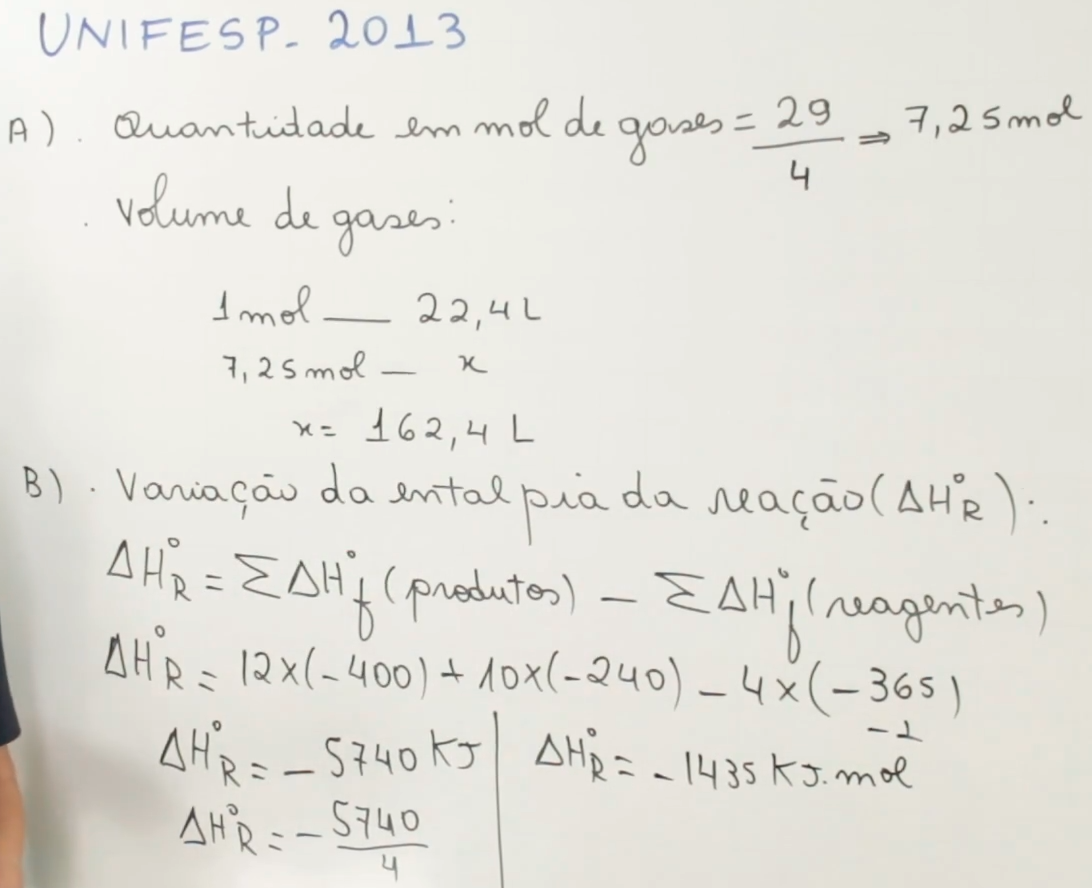 UNIFESP- 2013
A) . Quantidade em mol de gases = 29/4 ⇒ 7,25 mol
. Volume de gases:
1 mol — 22,4 L
7,25 mol — x
x = 162,4 L
B) . Variação da entalpia da reação (ΔH°R):.
ΔH°R = ΣΔH°f (produtos) - ΣΔH°f (reagentes)
ΔH°R = 12x(-400) + 10x(-240) - 4x(-365)
ΔH°R = - 5740 KJ
ΔH°R = - 5740/4
ΔH°R = - 1435 KJ.mol⁻¹